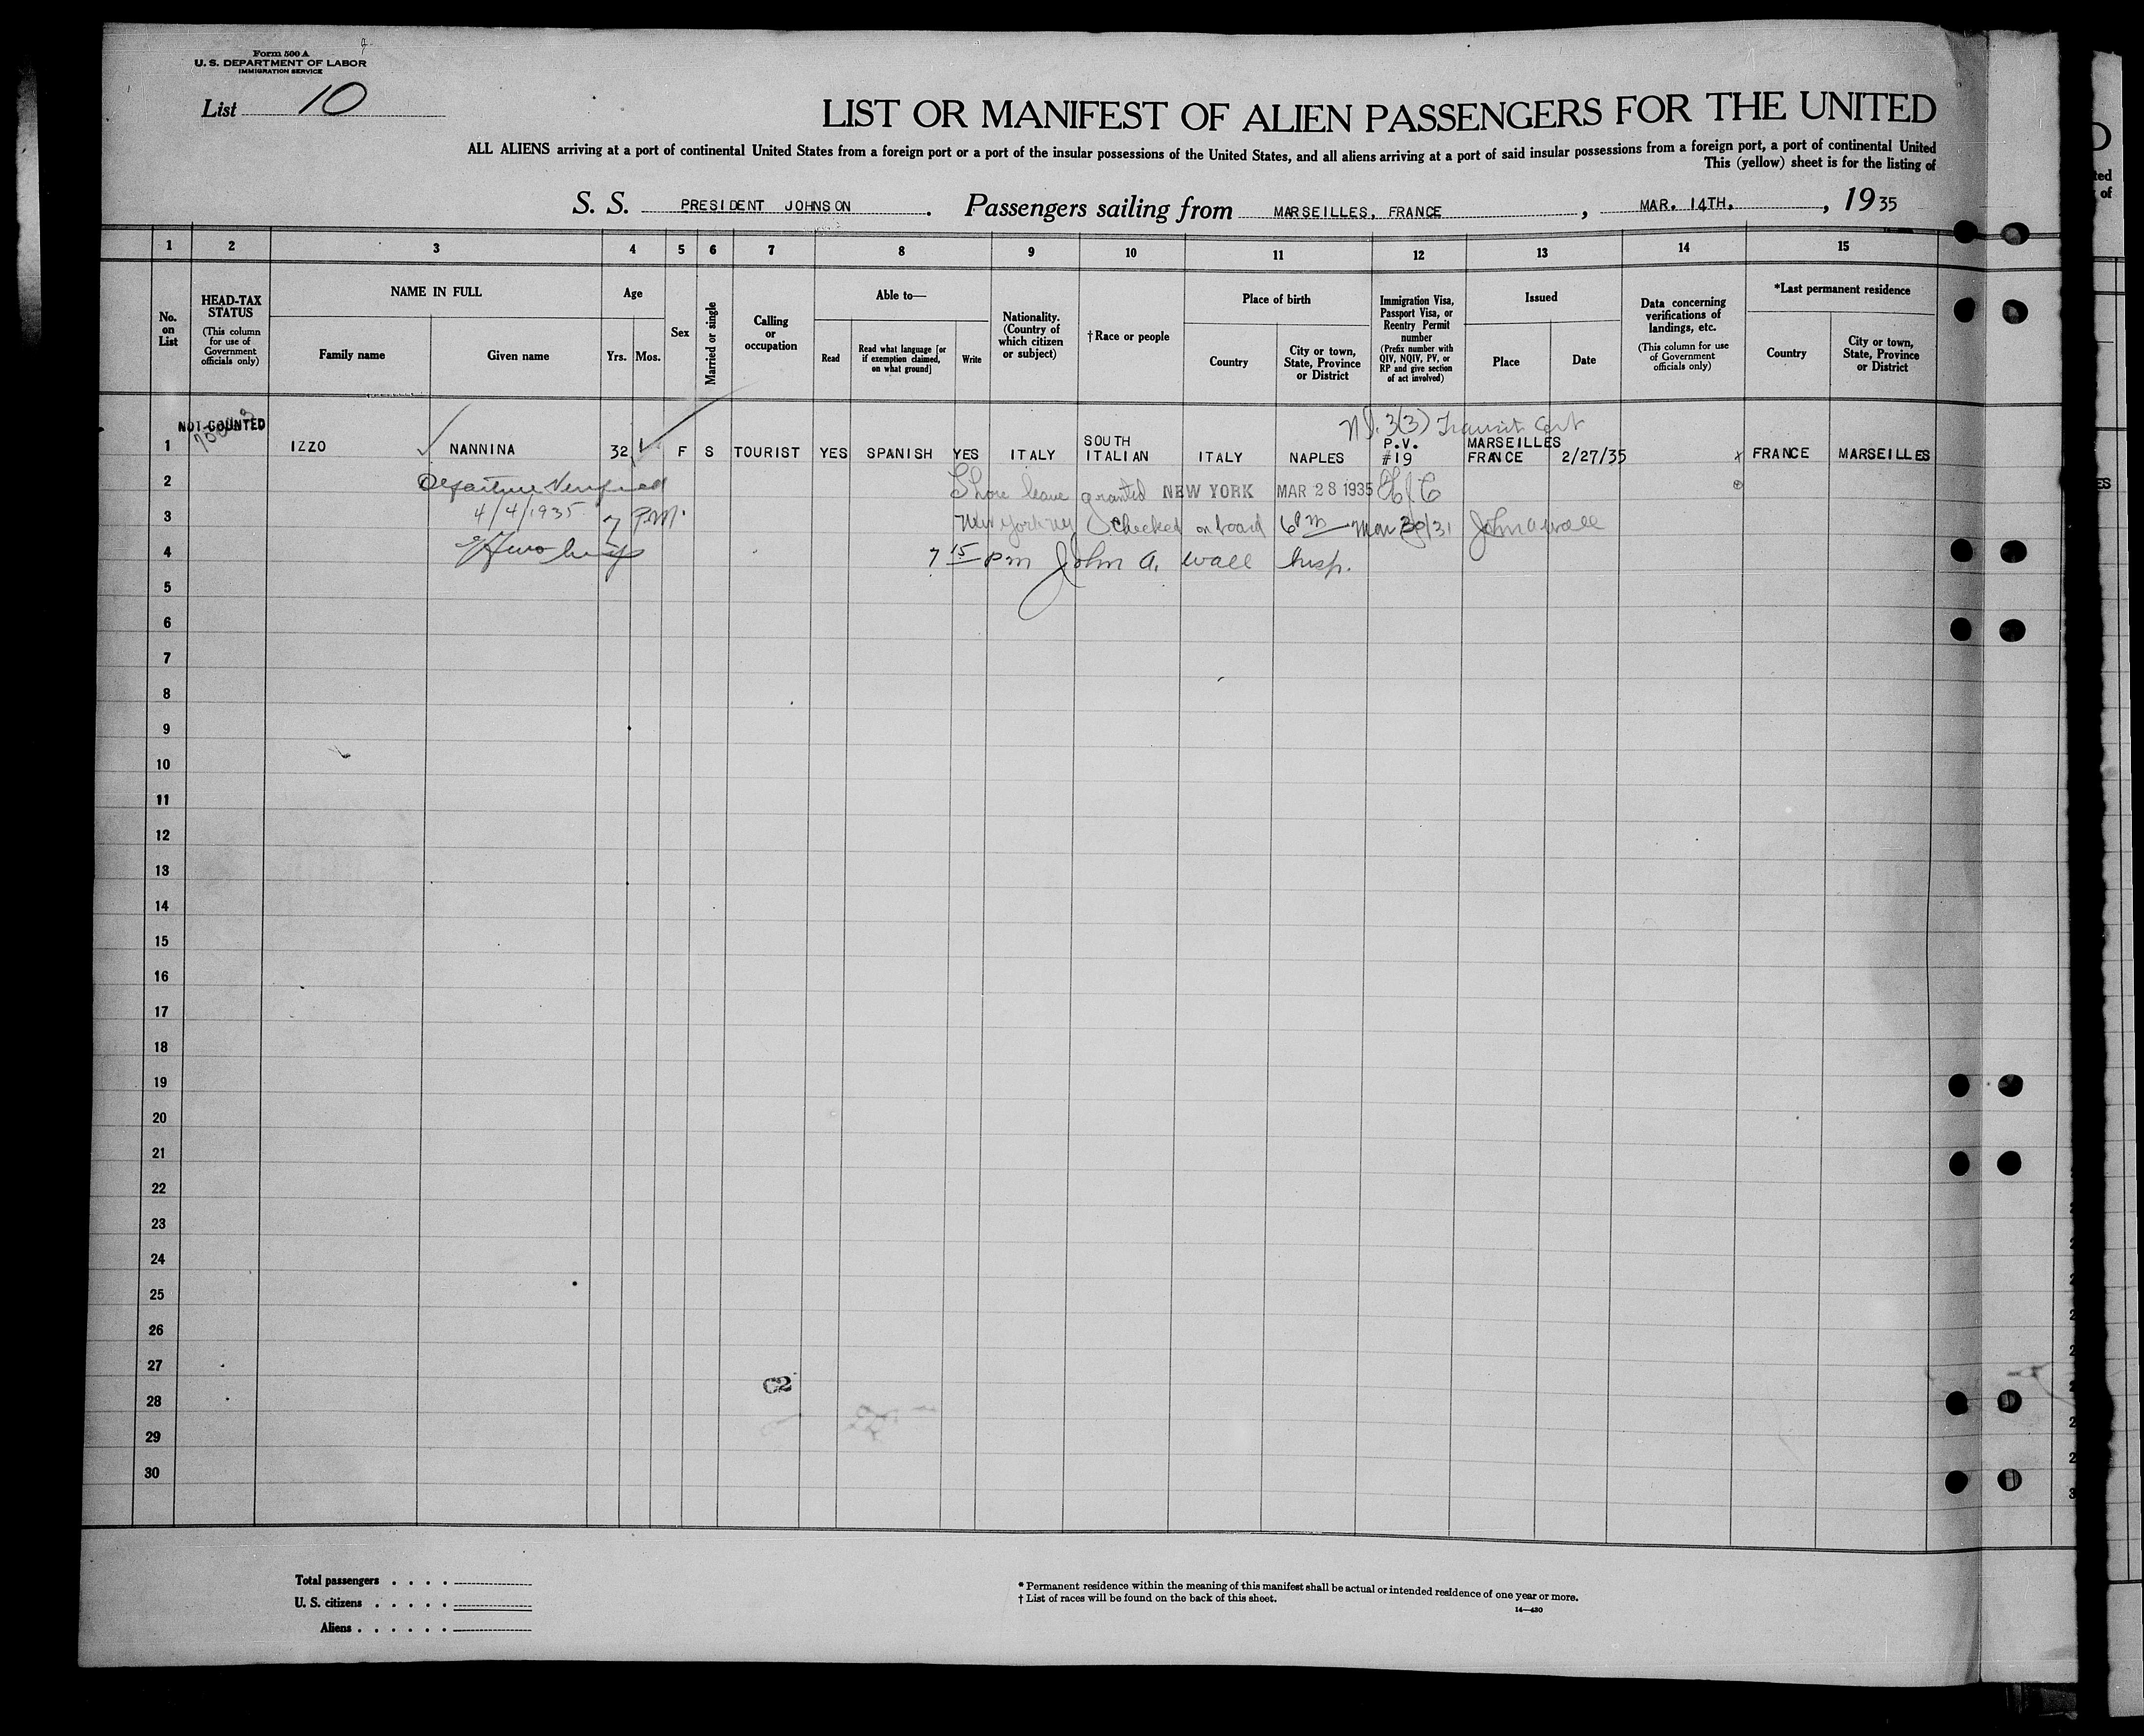 Form 500 A
U. S. DEPARTMENT OF LABOR
IMMIGRATION SERVICE
List 10
LIST OR MANIFEST OF ALIEN PASSENGERS FOR THE UNITED
ALL ALIENS arriving at a port of continental United States from a foreign port or a port of the insular possessions of the United States, and all aliens arriving at a port of said insular possessions from a foreign port, a port of continental United
This (yellow) sheet is for the listing of
S. S. PRESIDENT JOHNSON . Passengers sailing from MARSEILLES, FRANCE , MAR. 14TH. , 1935
1 2 3 4 5 6 7 8 9 10 11 12 13 14 15
No. on List
HEAD-TAX STATUS
(This column for use of Government officials only)
NAME IN FULL
Family name
Given name
Age
Yrs. Mos.
Sex
Married or single
Calling or occupation
Able to—
Read
Read what language [or if exemption claimed, on what ground]
Write
Nationality. (Country of which citizen or subject)
†Race or people
Place of birth
Country
City or town, State, Province or District
Immigration Visa, Passport Visa, or Reentry Permit number
(Prefix number with QIV, NQIV, PV, or RP and give section of act involved)
Issued
Place
Date
Data concerning verifications of landings, etc.
(This column for use of Government officials only)
*Last permanent residence
Country
City or town, State, Province or District
NOT COUNTED
3(3) Transit Cert
1 IZZO NANNINA 32 F S TOURIST YES SPANISH YES ITALY SOUTH ITALIAN ITALY NAPLES P.V. #19 MARSEILLES FRANCE 2/27/35 x FRANCE MARSEILLES
2 Departure Verified Shore leave granted NEW YORK MAR 28 1935
3 4/4/1935 7 PM. New York NY Checked on board 6 PM Mar John A Wall
4 7 15 PM John A. Wall Insp.
5
6
7
8
9
10
11
12
13
14
15
16
17
18
19
20
21
22
23
24
25
26
27
C2
28
29
30
Total passengers . . . .
U. S. citizens . . . . .
Aliens . . . . . .
* Permanent residence within the meaning of this manifest shall be actual or intended residence of one year or more.
† List of races will be found on the back of this sheet.
14—430